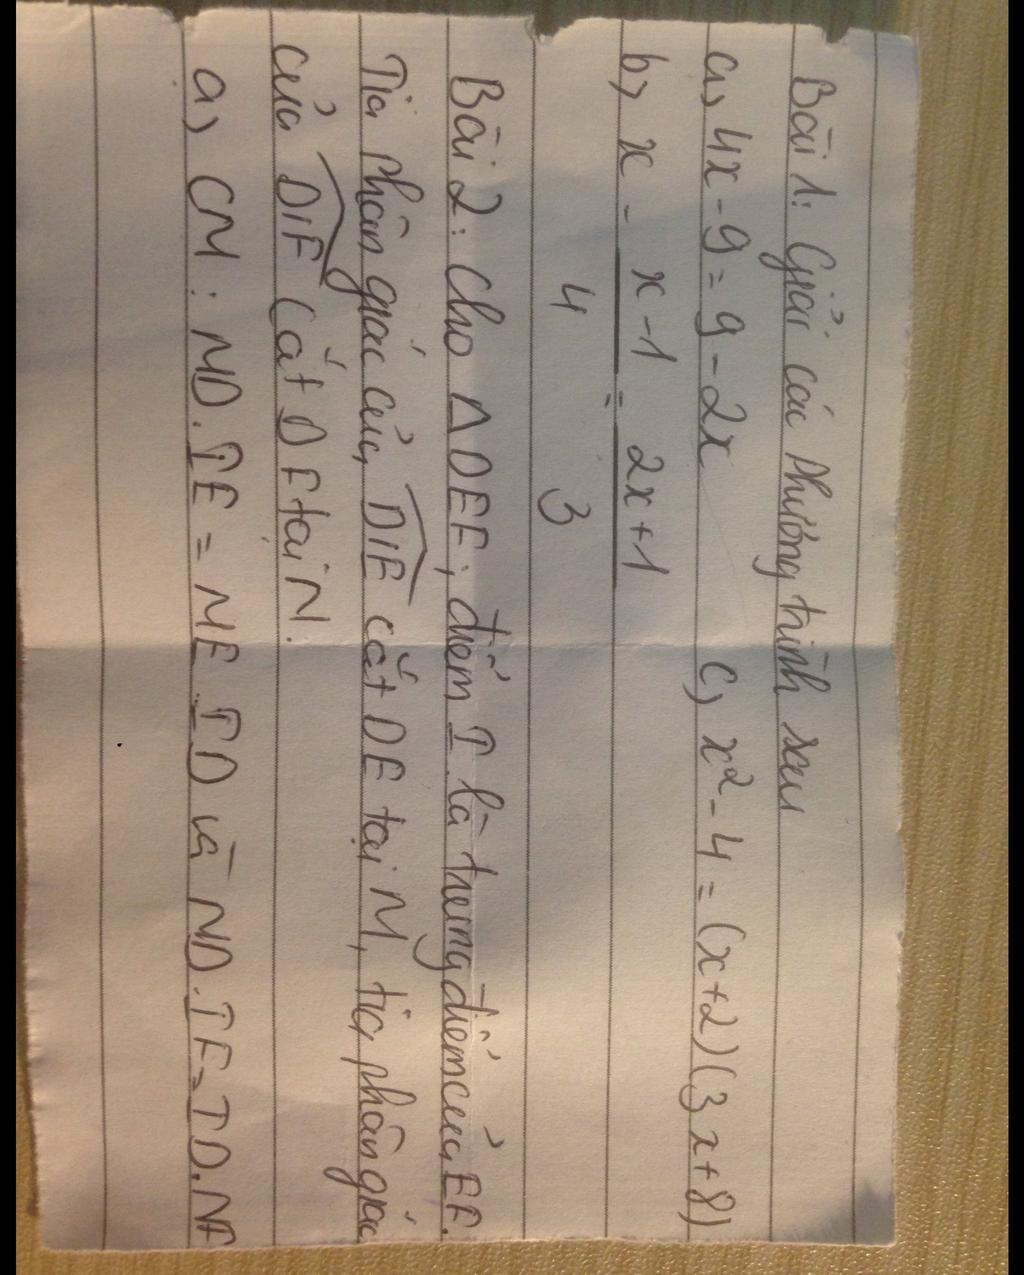 Bài 1: Giải các phương trình sau
a, 4x - 9 = 9 - 2x
c, x² - 4 = (x+2)(3x+8)
b, x - \frac{x-1}{4} = \frac{2x+1}{3}
Bài 2: Cho △DEF, điểm I là trung điểm của EF.
Tia phân giác của \widehat{DIE} cắt DE tại M, tia phân giác
của \widehat{DIF} cắt DF tại N.
a, CM: MD.IE = ME.ID và ND.IF=ID.NF